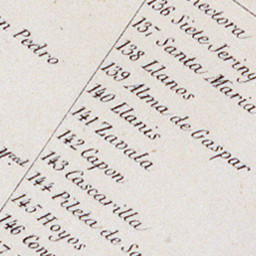 n Pedro
gral
136 Siete Jering
137 Santa Maria
138 Llanos
139 Alma de Gaspar
140 Llanis
141 Zavala
142 Capon
143 Cascarilla
144 Pileta de
145 Hoyos
146